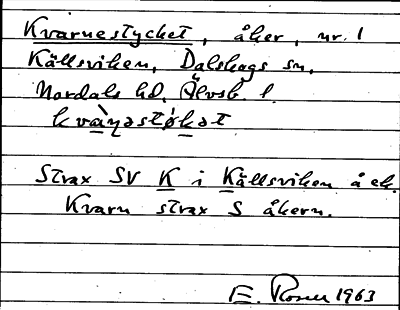 Kvarnestycket, åker, nr. 1
Källsviken, Dalskogs sn,
Nordals hd, Älvsb. l.
Strax SV K i Källsviken å ek.
Kvarn strax S åkern.
E. Rosén 1963